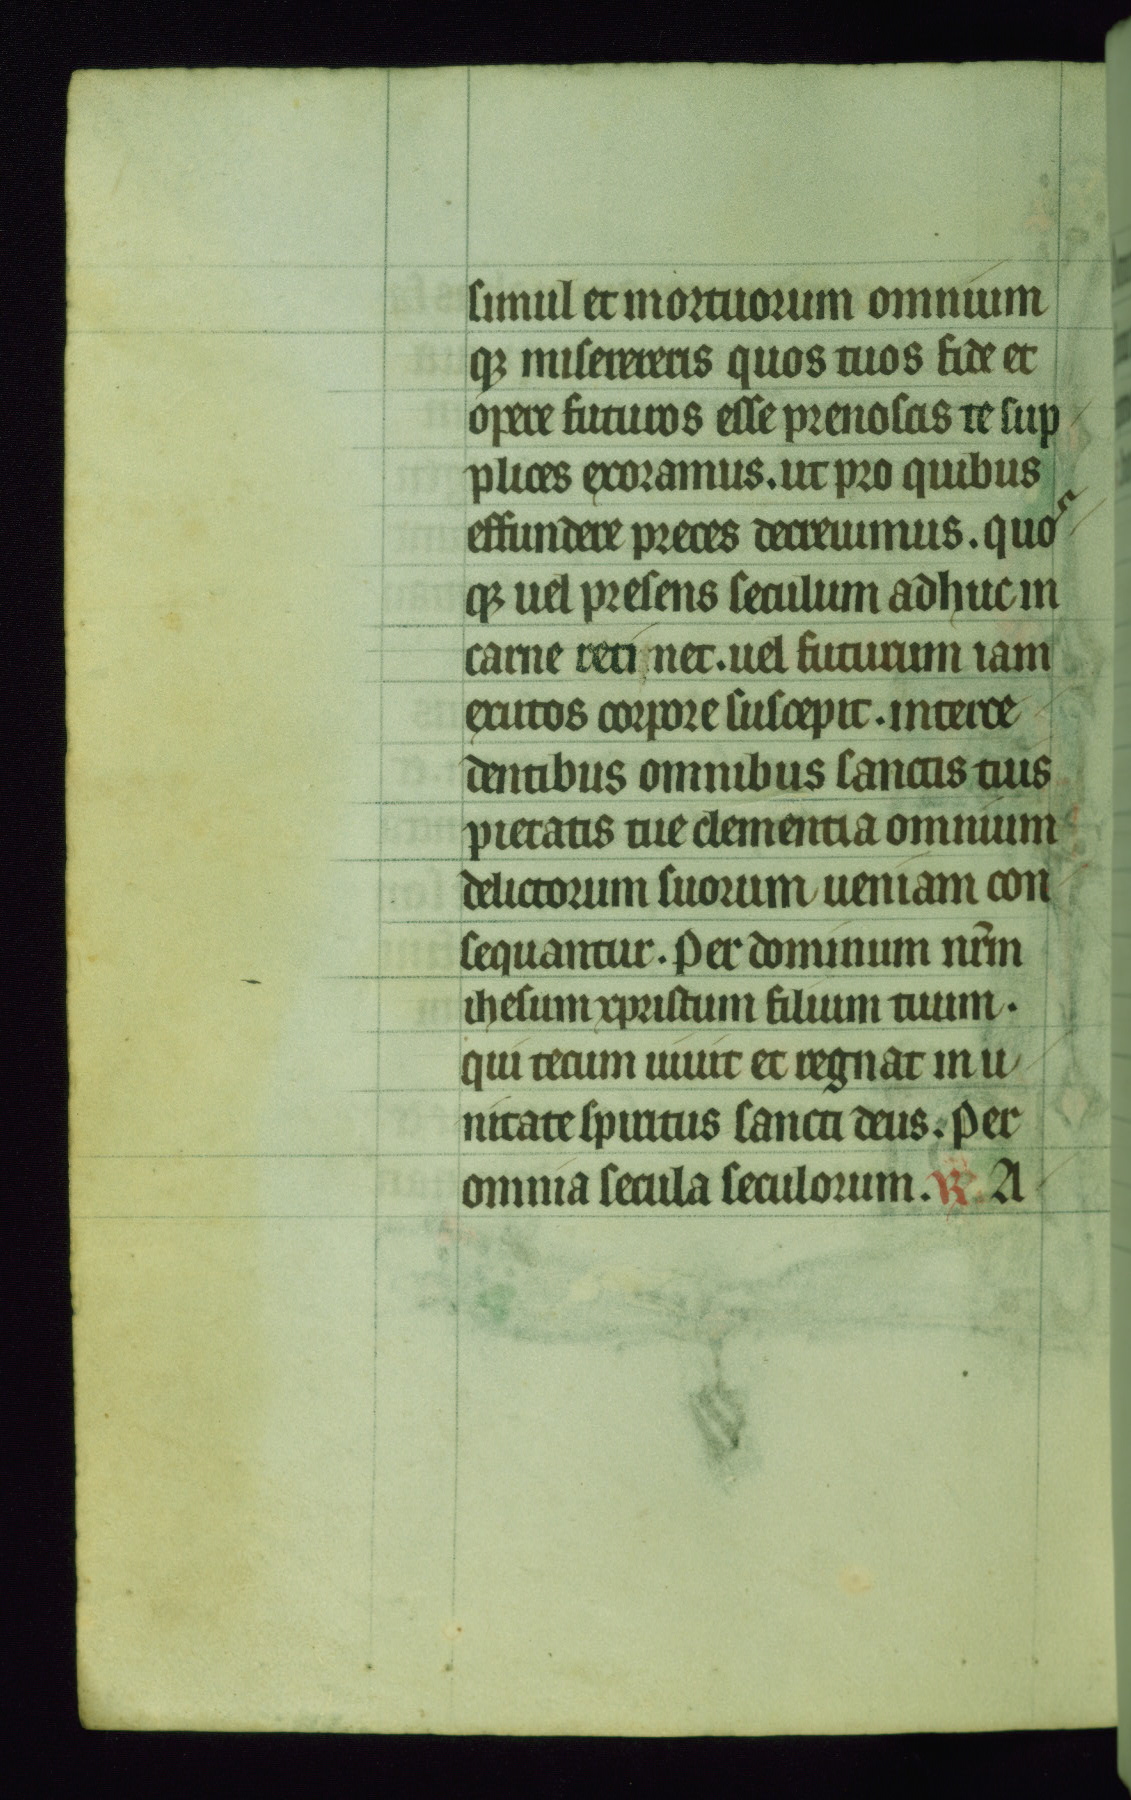 simul et mortuorum omnium
qꝫ miserereris quos tuos fide et
opere futuros esse prenoscis te sup
plices exoramus. ut pro quibus
effundere preces decreuimus. quos
qꝫ uel presens seculum adhuc in
carne retinet. uel futurum iam
exutos corpore suscepit. interce
dentibus omnibus sanctis tuis
pietatis tue clementia omnium
delictorum suorum ueniam con
sequantur. Per dominum nr̄m
ihesum xpristum filium tuum.
qui tecum uiuit et regnat in u
nitate spiritus sancti deus. Per
omnia secula seculorum. ℟. A